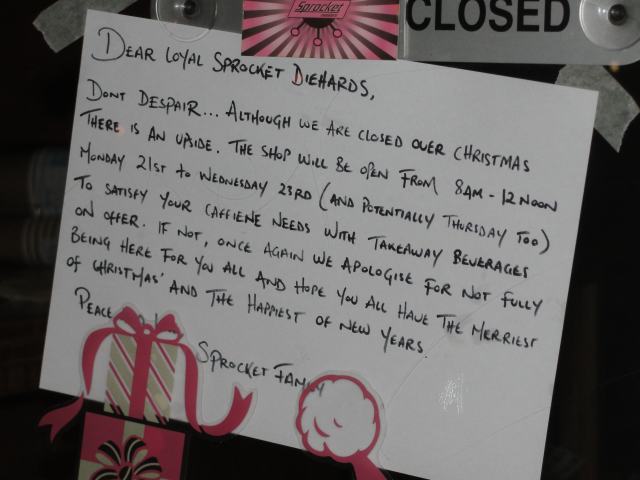 Sprocket
CLOSED
DEAR LOYAL SPROCKET DIEHARDS,
DONT DESPAIR... ALTHOUGH WE ARE CLOSED OVER CHRISTMAS
THERE IS AN UPSIDE. THE SHOP WILL BE OPEN FROM 8AM - 12NOON
MONDAY 21ST TO WEDNESDAY 23RD (AND POTENTIALLY THURSDAY TOO)
TO SATISFY YOUR CAFFIENE NEEDS WITH TAKEAWAY BEVERAGES
ON OFFER. IF NOT, ONCE AGAIN WE APOLOGISE FOR NOT FULLY
BEING HERE FOR YOU ALL AND HOPE YOU ALL HAVE THE MERRIEST
OF CHRISTMAS' AND THE HAPPIEST OF NEW YEARS.
PEACE
SPROCKET FAMILY